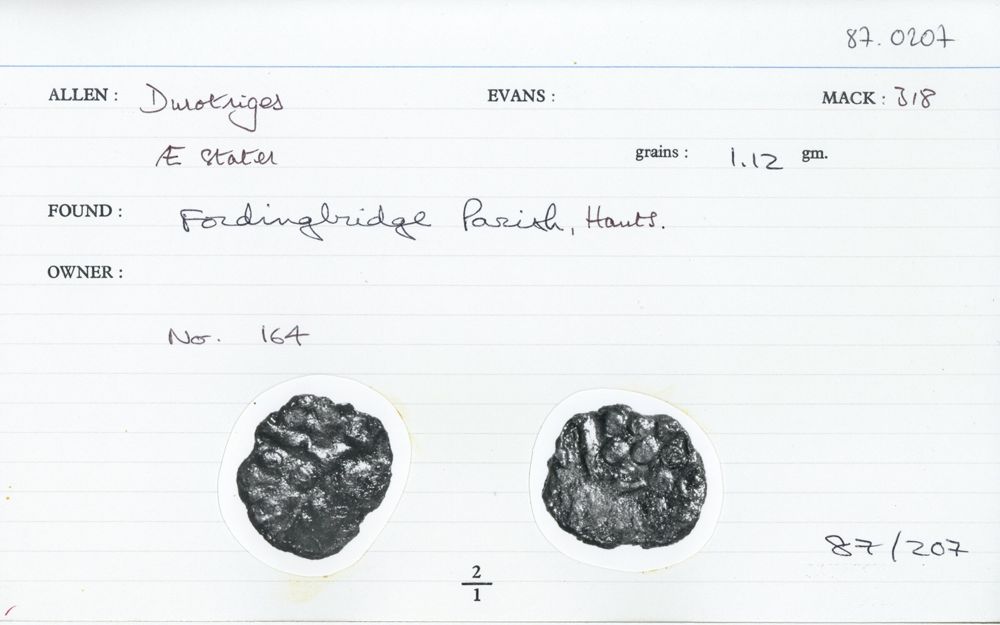 87.0207
ALLEN : Durotriges EVANS : MACK : 318
Æ Stater grains : 1.12 gm.
FOUND : Fordingbridge Parish, Hants.
OWNER :
No. 164
87/207
2
1